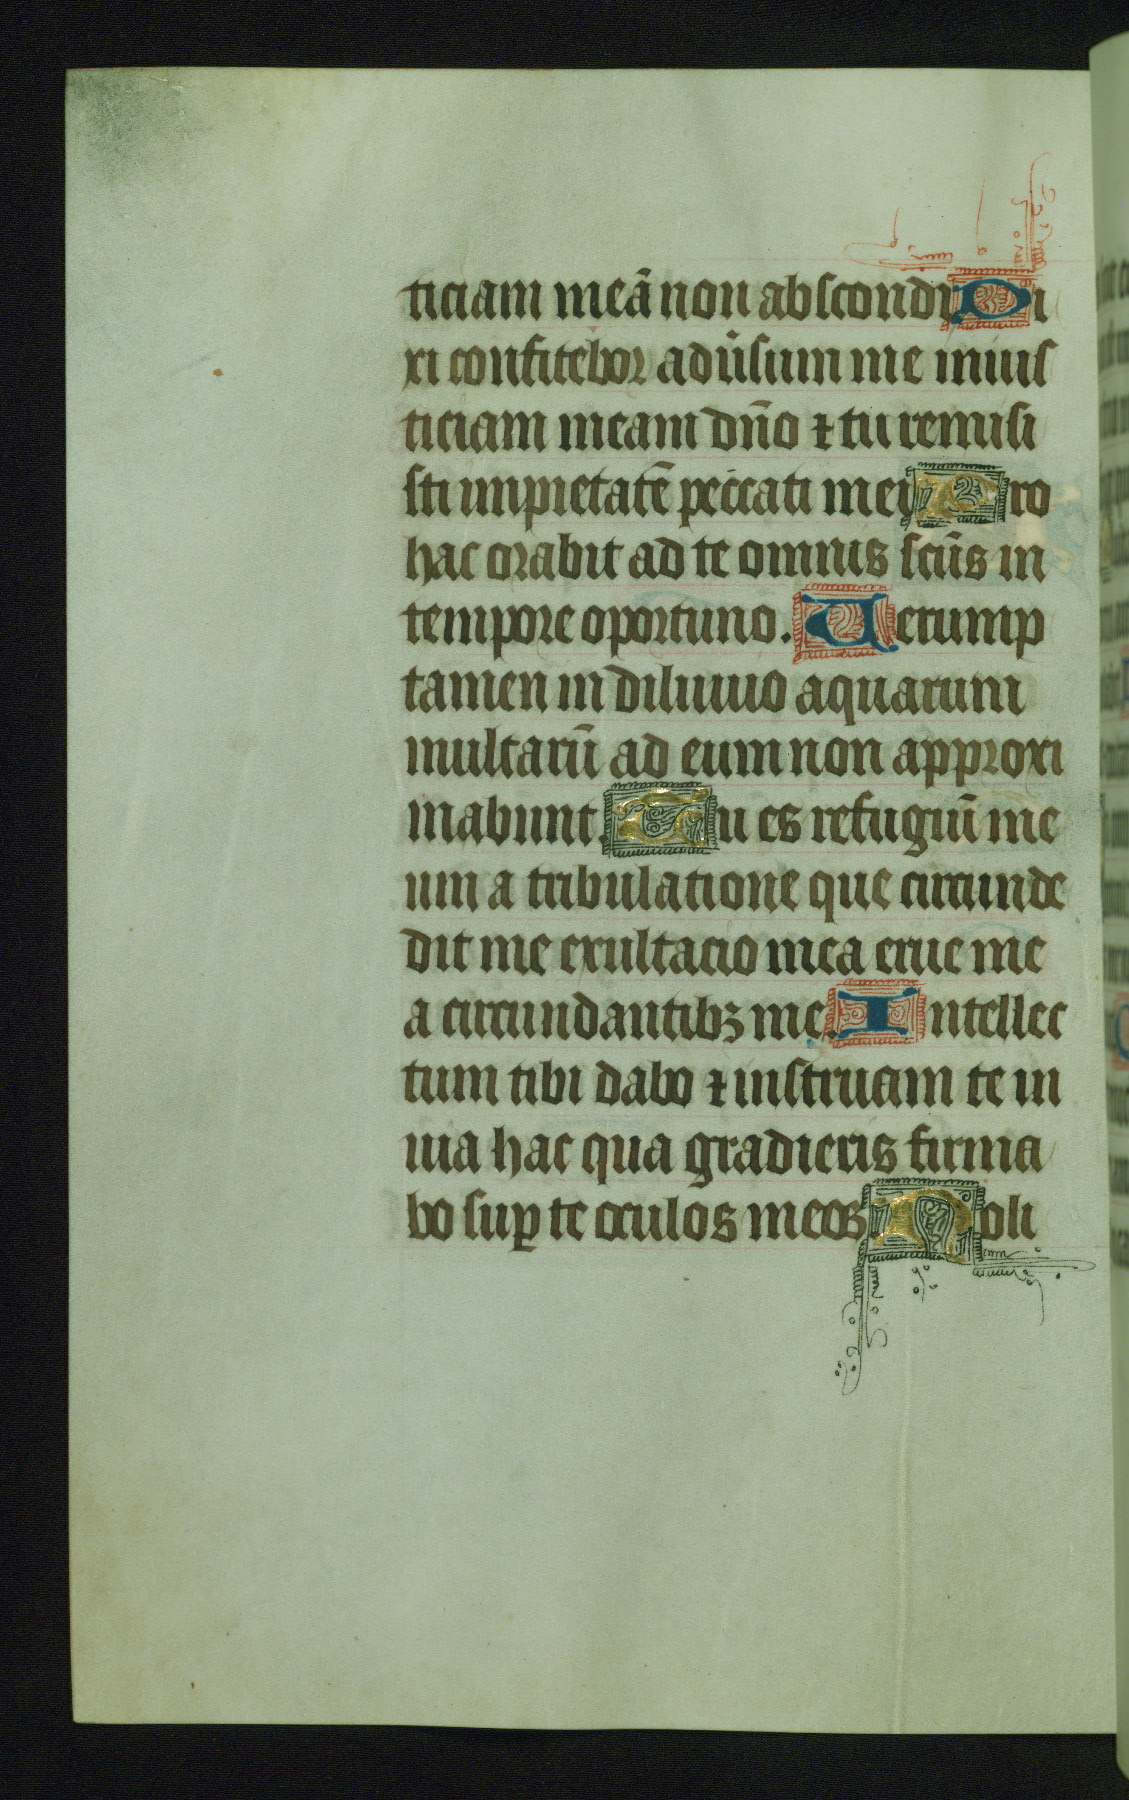 ticiam meā non abscondi Di
xi confitebor adūsum me inius
ticiam meam dn̄o ⁊ tu remisi
sti impietatē peccati mei Pro
hac orabit ad te omnis sc̄us in
tempore oportuno. Uerump
tamen in diluuio aquarum
multarū ad eum non approxi
mabunt. Tu es refugiū me
um a tribulatione que circunde
dit me exultacio mea erue me
a circundantibꝫ me. Intellec
tum tibi dabo ⁊ instruam te in
uia hac qua gradieris firma
bo suꝑ te oculos meos Noli